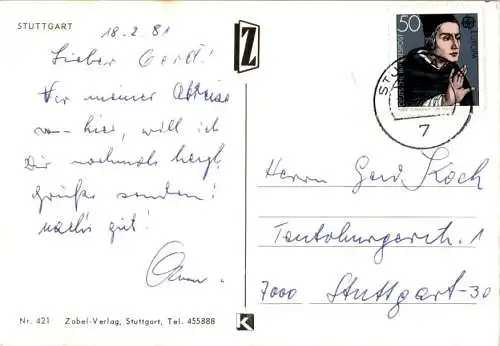 STUTTGART
18.2.81
Lieber Gerd!
Vor meiner Abreise
von hier, will ich
Dir nochmals herzl.
Grüße senden!
mach's gut!
Nr. 421 Zobel-Verlag, Stuttgart, Tel. 455888
Z
K
50
EUROPA
STU
7
Herrn Gerd Koch
Teutoburgerstr. 1
7000 Stuttgart-30